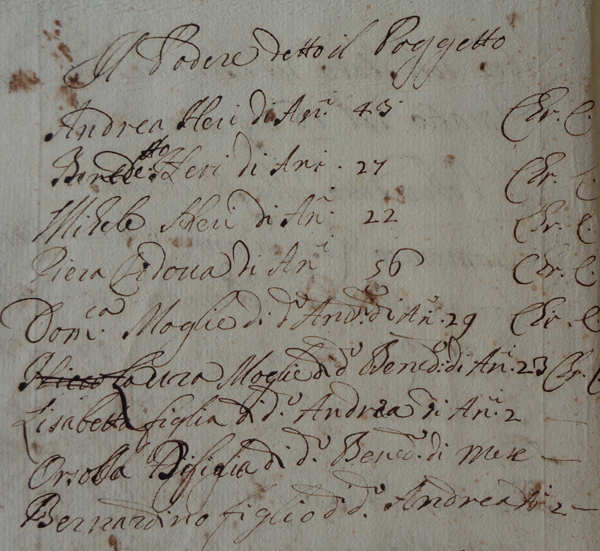 Il Podere detto il Poggetto
Andrea Neri di An.i 43 Chr. C.
Bened.tto Neri di Ani. 27 Chr. C.
Michele Neri di An.i 22 Chr. C.
Piera Vedova di An.i 56 Chr. C.
Dom.ca Moglie di d.o And.a di An.i 29 Chr. C.
Laura Moglie di d.o Bened.o di An.i 23 Chr. C.
Lisabetta figlia di d.o Andrea di An.i 2 —
Orsola figlia di d.o Bened.o di mese —
Bernardino figlio di d.o Andrea An.i 2 —